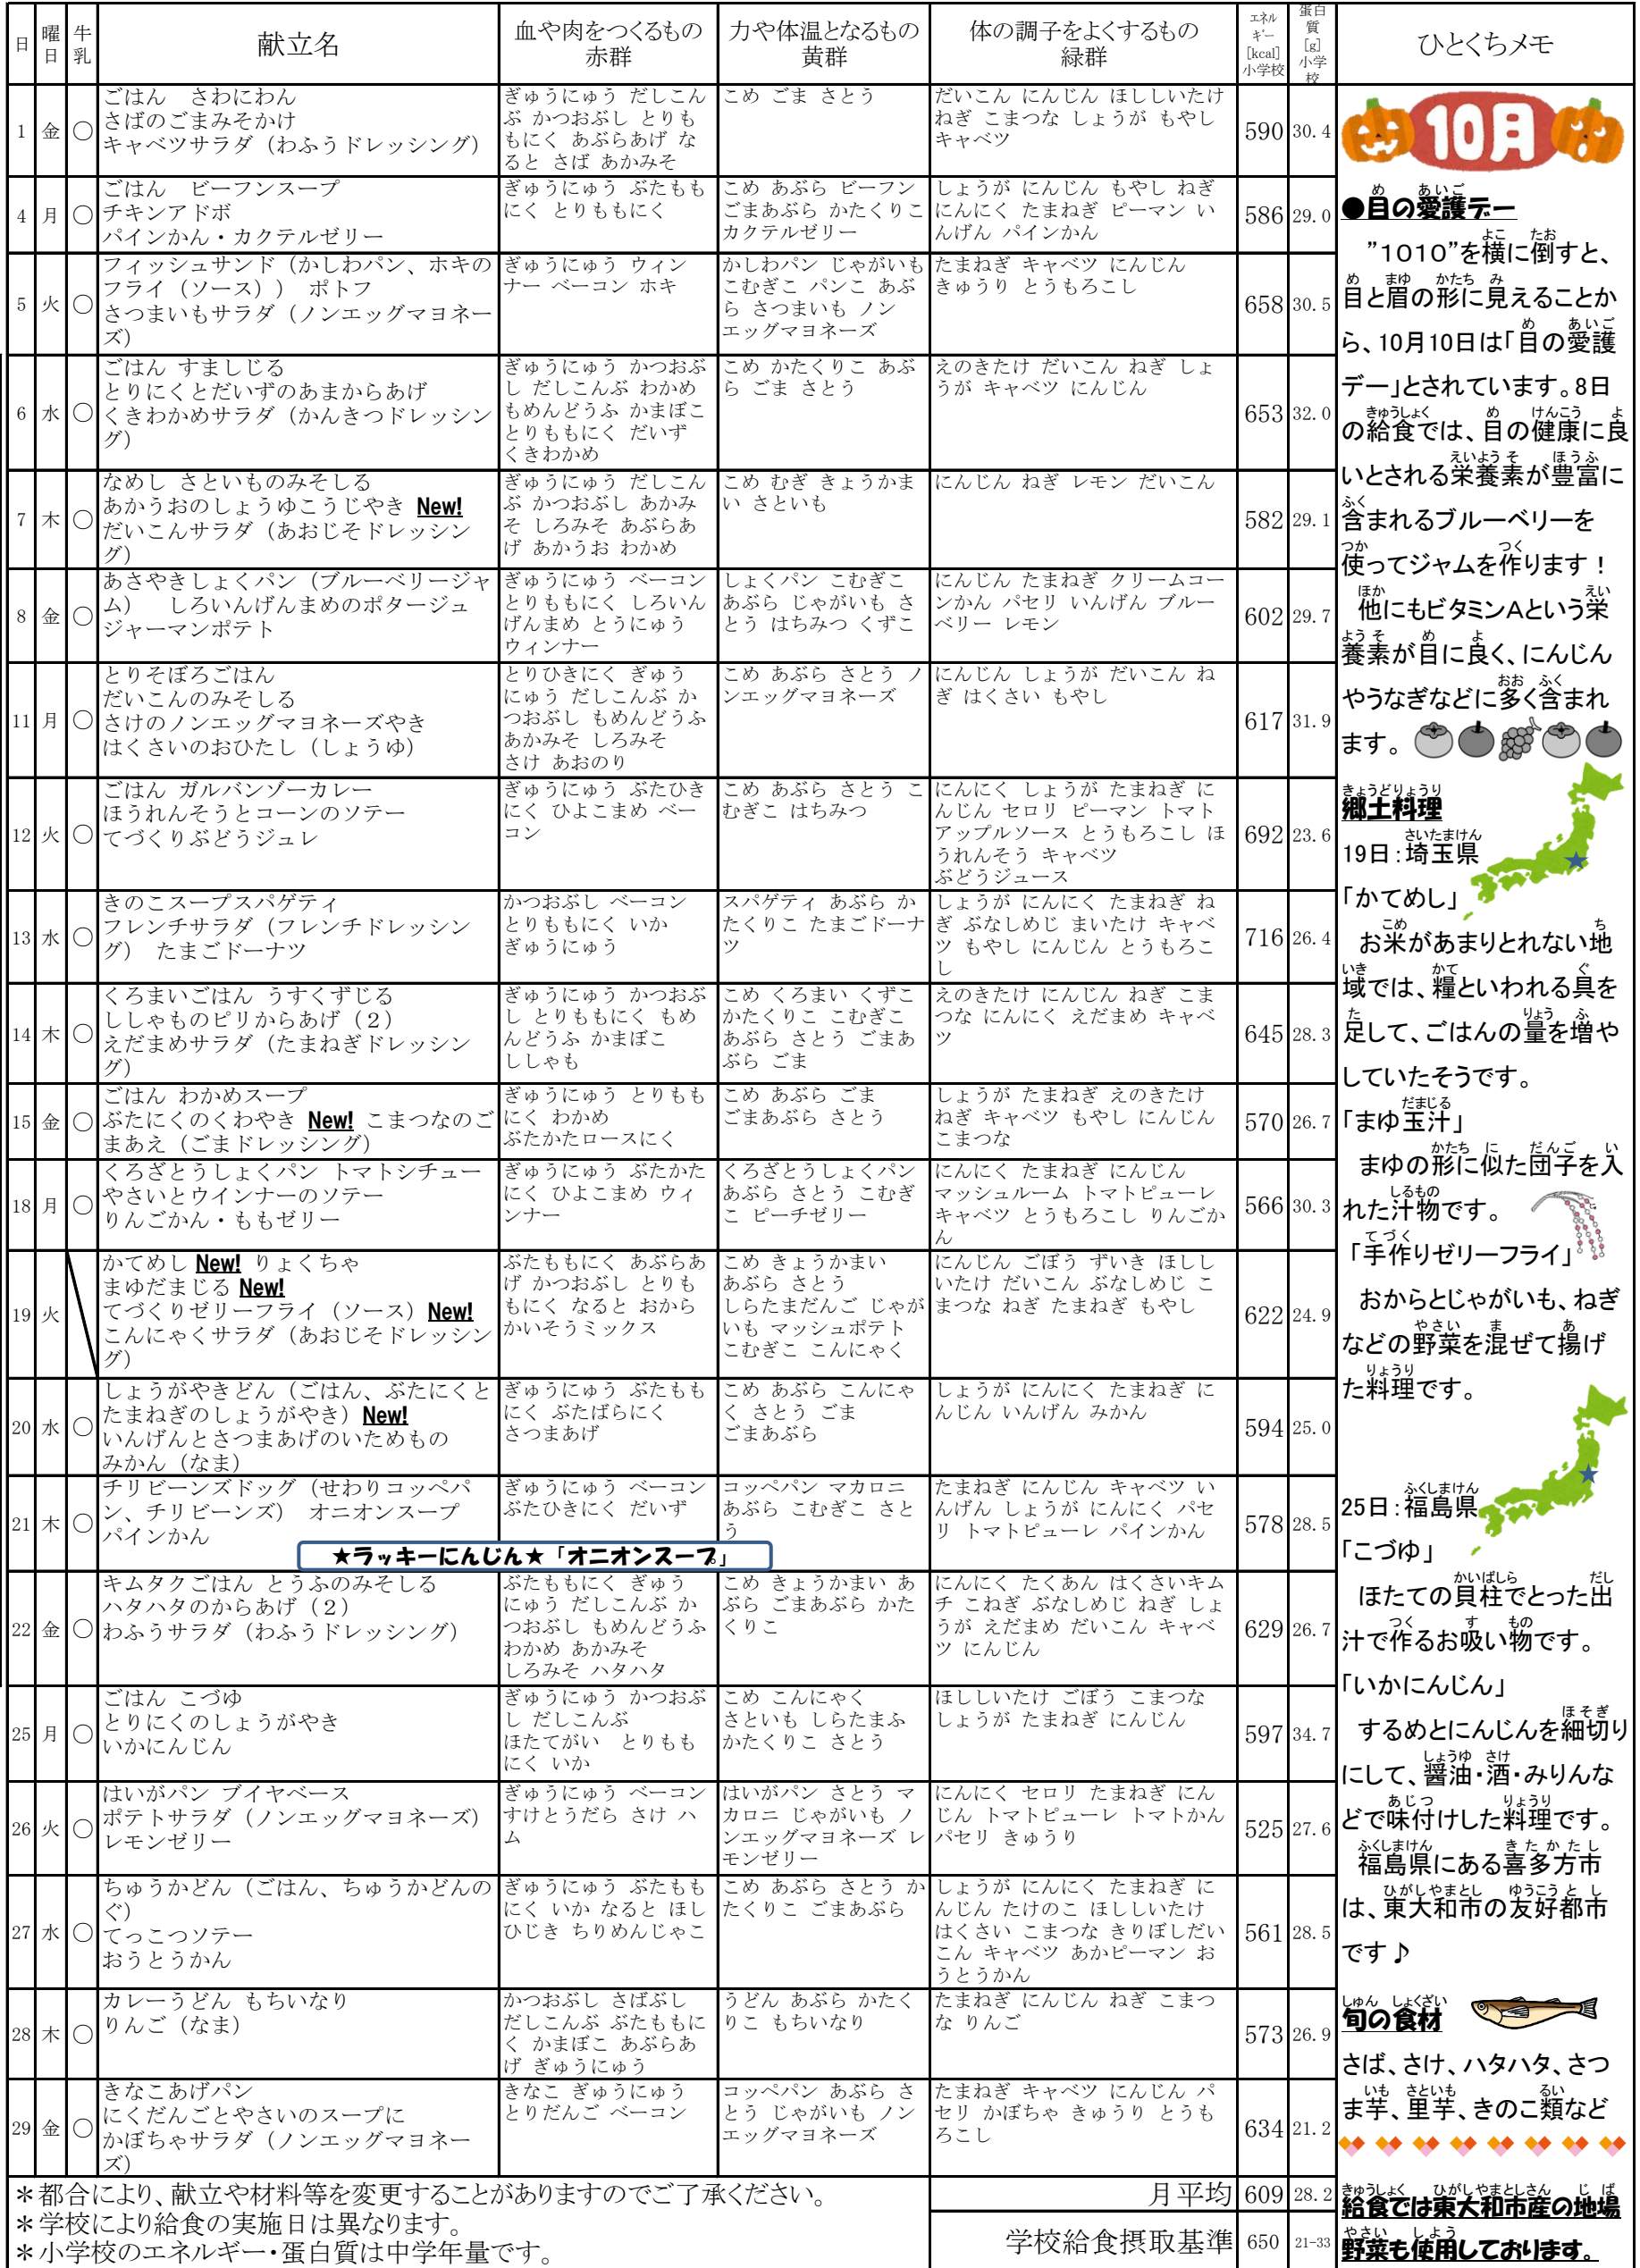 日 曜日 牛乳 献立名 血や肉をつくるもの 赤群 力や体温となるもの 黄群 体の調子をよくするもの 緑群 エネルギー [kcal] 小学校 蛋白質 [g] 小学校 ひとくちメモ
1 金 ○
ごはん さわにわん
さばのごまみそかけ
キャベツサラダ（わふうドレッシング）
ぎゅうにゅう だしこん
ぶ かつおぶし とりも
もにく あぶらあげ な
ると さば あかみそ
こめ ごま さとう
だいこん にんじん ほししいたけ
ねぎ こまつな しょうが もやし
キャベツ
590 30.4
4 月 ○
ごはん ビーフンスープ
チキンアドボ
パインかん・カクテルゼリー
ぎゅうにゅう ぶたもも
にく とりももにく
こめ あぶら ビーフン
ごまあぶら かたくりこ
カクテルゼリー
しょうが にんじん もやし ねぎ
にんにく たまねぎ ピーマン い
んげん パインかん
586 29.0
5 火 ○
フィッシュサンド（かしわパン、ホキの
フライ（ソース）） ポトフ
さつまいもサラダ（ノンエッグマヨネー
ズ）
ぎゅうにゅう ウィン
ナー ベーコン ホキ
かしわパン じゃがいも
こむぎこ パンこ あぶ
ら さつまいも ノン
エッグマヨネーズ
たまねぎ キャベツ にんじん
きゅうり とうもろこし
658 30.5
6 水 ○
ごはん すましじる
とりにくとだいずのあまからあげ
くきわかめサラダ（かんきつドレッシン
グ）
ぎゅうにゅう かつおぶ
し だしこんぶ わかめ
もめんどうふ かまぼこ
とりももにく だいず
くきわかめ
こめ かたくりこ あぶ
ら ごま さとう
えのきたけ だいこん ねぎ しょ
うが キャベツ にんじん
653 32.0
7 木 ○
なめし さといものみそしる
あかうおのしょうゆこうじやき New!
だいこんサラダ（あおじそドレッシン
グ）
ぎゅうにゅう だしこん
ぶ かつおぶし あかみ
そ しろみそ あぶらあ
げ あかうお わかめ
こめ むぎ きょうかま
い さといも
にんじん ねぎ レモン だいこん
582 29.1
8 金 ○
あさやきしょくパン（ブルーベリージャ
ム） しろいんげんまめのポタージュ
ジャーマンポテト
ぎゅうにゅう ベーコン
とりももにく しろいん
げんまめ とうにゅう
ウィンナー
しょくパン こむぎこ
あぶら じゃがいも さ
とう はちみつ くずこ
にんじん たまねぎ クリームコー
ンかん パセリ いんげん ブルー
ベリー レモン
602 29.7
11 月 ○
とりそぼろごはん
だいこんのみそしる
さけのノンエッグマヨネーズやき
はくさいのおひたし（しょうゆ）
とりひきにく ぎゅう
にゅう だしこんぶ か
つおぶし もめんどうふ
あかみそ しろみそ
さけ あおのり
こめ あぶら さとう ノ
ンエッグマヨネーズ
にんじん しょうが だいこん ね
ぎ はくさい もやし
617 31.9
12 火 ○
ごはん ガルバンゾーカレー
ほうれんそうとコーンのソテー
てづくりぶどうジュレ
ぎゅうにゅう ぶたひき
にく ひよこまめ ベー
コン
こめ あぶら さとう こ
むぎこ はちみつ
にんにく しょうが たまねぎ に
んじん セロリ ピーマン トマト
アップルソース とうもろこし ほ
うれんそう キャベツ
ぶどうジュース
692 23.6
13 水 ○
きのこスープスパゲティ
フレンチサラダ（フレンチドレッシン
グ） たまごドーナツ
かつおぶし ベーコン
とりももにく いか
ぎゅうにゅう
スパゲティ あぶら か
たくりこ たまごドーナ
ツ
しょうが にんにく たまねぎ ね
ぎ ぶなしめじ まいたけ キャベ
ツ もやし にんじん とうもろこ
し
716 26.4
14 木 ○
くろまいごはん うすくずじる
ししゃものピリからあげ（2）
えだまめサラダ（たまねぎドレッシン
グ）
ぎゅうにゅう かつおぶ
し とりももにく もめ
んどうふ かまぼこ
ししゃも
こめ くろまい くずこ
かたくりこ こむぎこ
あぶら さとう ごまあ
ぶら ごま
えのきたけ にんじん ねぎ こま
つな にんにく えだまめ キャベ
ツ
645 28.3
15 金 ○
ごはん わかめスープ
ぶたにくのくわやき New! こまつなのご
まあえ（ごまドレッシング）
ぎゅうにゅう とりもも
にく わかめ
ぶたかたロースにく
こめ あぶら ごま
ごまあぶら さとう
しょうが たまねぎ えのきたけ
ねぎ キャベツ もやし にんじん
こまつな
570 26.7
18 月 ○
くろざとうしょくパン トマトシチュー
やさいとウインナーのソテー
りんごかん・ももゼリー
ぎゅうにゅう ぶたかた
にく ひよこまめ ウィ
ンナー
くろざとうしょくパン
あぶら さとう こむぎ
こ ピーチゼリー
にんにく たまねぎ にんじん
マッシュルーム トマトピューレ
キャベツ とうもろこし りんごか
ん
566 30.3
19 火
かてめし New! りょくちゃ
まゆだまじる New!
てづくりゼリーフライ（ソース）New!
こんにゃくサラダ（あおじそドレッシン
グ）
ぶたももにく あぶらあ
げ かつおぶし とりも
もにく なると おから
かいそうミックス
こめ きょうかまい
あぶら さとう
しらたまだんご じゃが
いも マッシュポテト
こむぎこ こんにゃく
にんじん ごぼう ずいき ほしし
いたけ だいこん ぶなしめじ こ
まつな ねぎ たまねぎ もやし
622 24.9
20 水 ○
しょうがやきどん（ごはん、ぶたにくと
たまねぎのしょうがやき）New!
いんげんとさつまあげのいためもの
みかん（なま）
ぎゅうにゅう ぶたもも
にく ぶたばらにく
さつまあげ
こめ あぶら こんにゃ
く さとう ごま
ごまあぶら
しょうが にんにく たまねぎ に
んじん いんげん みかん
594 25.0
21 木 ○
チリビーンズドッグ（せわりコッペパ
ン、チリビーンズ） オニオンスープ
パインかん
ぎゅうにゅう ベーコン
ぶたひきにく だいず
コッペパン マカロニ
あぶら こむぎこ さと
う
たまねぎ にんじん キャベツ い
んげん しょうが にんにく パセ
リ トマトピューレ パインかん
578 28.5
★ラッキーにんじん★「オニオンスープ」
22 金 ○
キムタクごはん とうふのみそしる
ハタハタのからあげ（2）
わふうサラダ（わふうドレッシング）
ぶたももにく ぎゅう
にゅう だしこんぶ か
つおぶし もめんどうふ
わかめ あかみそ
しろみそ ハタハタ
こめ きょうかまい あ
ぶら ごまあぶら かた
くりこ
にんにく たくあん はくさいキム
チ こねぎ ぶなしめじ ねぎ しょ
うが えだまめ だいこん キャベ
ツ にんじん
629 26.7
25 月 ○
ごはん こづゆ
とりにくのしょうがやき
いかにんじん
ぎゅうにゅう かつおぶ
し だしこんぶ
ほたてがい とりもも
にく いか
こめ こんにゃく
さといも しらたまふ
かたくりこ さとう
ほししいたけ ごぼう こまつな
しょうが たまねぎ にんじん
597 34.7
26 火 ○
はいがパン ブイヤベース
ポテトサラダ（ノンエッグマヨネーズ）
レモンゼリー
ぎゅうにゅう ベーコン
すけとうだら さけ ハ
ム
はいがパン さとう マ
カロニ じゃがいも ノ
ンエッグマヨネーズ レ
モンゼリー
にんにく セロリ たまねぎ にん
じん トマトピューレ トマトかん
パセリ きゅうり
525 27.6
27 水 ○
ちゅうかどん（ごはん、ちゅうかどんの
ぐ）
てっこつソテー
おうとうかん
ぎゅうにゅう ぶたもも
にく いか なると ほし
ひじき ちりめんじゃこ
こめ あぶら さとう か
たくりこ ごまあぶら
しょうが にんにく たまねぎ に
んじん たけのこ ほししいたけ
はくさい こまつな きりぼしだい
こん キャベツ あかピーマン お
うとうかん
561 28.5
28 木 ○
カレーうどん もちいなり
りんご（なま）
かつおぶし さばぶし
だしこんぶ ぶたももに
く かまぼこ あぶらあ
げ ぎゅうにゅう
うどん あぶら かたく
りこ もちいなり
たまねぎ にんじん ねぎ こまつ
な りんご
573 26.9
29 金 ○
きなこあげパン
にくだんごとやさいのスープに
かぼちゃサラダ（ノンエッグマヨネー
ズ）
きなこ ぎゅうにゅう
とりだんご ベーコン
コッペパン あぶら さ
とう じゃがいも ノン
エッグマヨネーズ
たまねぎ キャベツ にんじん パ
セリ かぼちゃ きゅうり とうも
ろこし
634 21.2
＊都合により、献立や材料等を変更することがありますのでご了承ください。
＊学校により給食の実施日は異なります。
＊小学校のエネルギー・蛋白質は中学年量です。
月平均 609 28.2
学校給食摂取基準 650 21-33
10月
●目の愛護デー
”1010”を横に倒すと、
目と眉の形に見えることか
ら、10月10日は「目の愛護
デー」とされています。8日
の給食では、目の健康に良
いとされる栄養素が豊富に
含まれるブルーベリーを
使ってジャムを作ります！
他にもビタミンAという栄
養素が目に良く、にんじん
やうなぎなどに多く含まれ
ます。
郷土料理
19日：埼玉県
「かてめし」
お米があまりとれない地
域では、糧といわれる具を
足して、ごはんの量を増や
していたそうです。
「まゆ玉汁」
まゆの形に似た団子を入
れた汁物です。
「手作りゼリーフライ」
おからとじゃがいも、ねぎ
などの野菜を混ぜて揚げ
た料理です。
25日：福島県
「こづゆ」
ほたての貝柱でとった出
汁で作るお吸い物です。
「いかにんじん」
するめとにんじんを細切り
にして、醤油・酒・みりんな
どで味付けした料理です。
福島県にある喜多方市
は、東大和市の友好都市
です♪
旬の食材
さば、さけ、ハタハタ、さつ
ま芋、里芋、きのこ類など
給食では東大和市産の地場
野菜も使用しております。